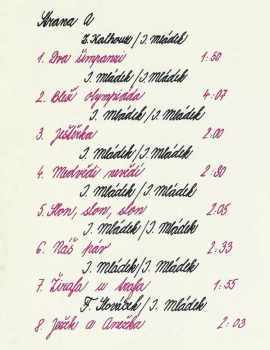 Strana A
Z. Kalhous / I. Mládek
1. Dva šimpanzi 1:50
I. Mládek / I. Mládek
2. Bleší olympiáda 4:07
I. Mládek / I. Mládek
3. Ještěrka 2:00
I. Mládek / I. Mládek
4. Medvědi nevědí 2:30
I. Mládek / I. Mládek
5. Slon, slon, slon 2:05
I. Mládek / I. Mládek
6. Náš pár 2:33
I. Mládek / I. Mládek
7. Žirafa u trafa 1:55
F. Slováček / I. Mládek
8. Ježek a Anežka 2:03